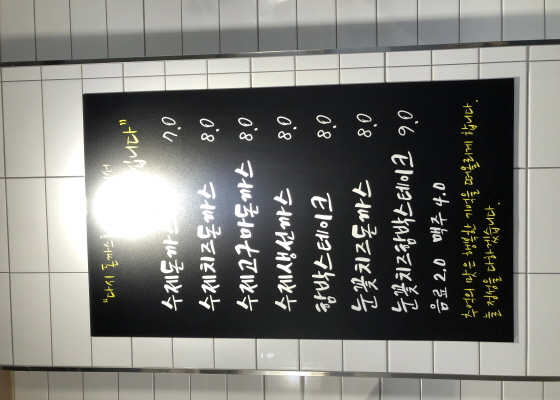 "다시 돈까스
니다"
수제돈까스 7.0
수제치즈돈까스 8.0
수제고구마돈까스 8.0
수제생선까스 8.0
함박스테이크 8.0
눈꽃치즈돈까스 8.0
눈꽃치즈함박스테이크 9.0
음료 2.0 맥주 4.0
추억의 맛은 행복한 기억을 떠올리게 합니다.
늘 정성을 다하겠습니다.